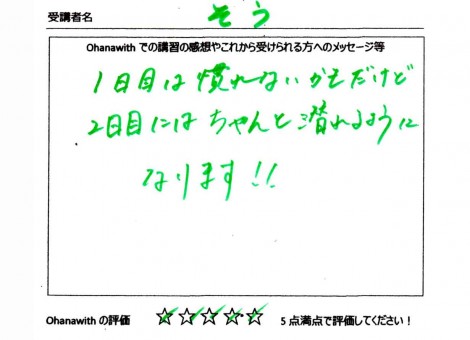 受講者名 そう
Ohanawith での講習の感想やこれから受けられる方へのメッセージ等
1日目は慣れないかもだけど
2日目にはちゃんと潜れるように
なります!!
Ohanawith の評価 ☆☆☆☆☆ 5点満点で評価してください!